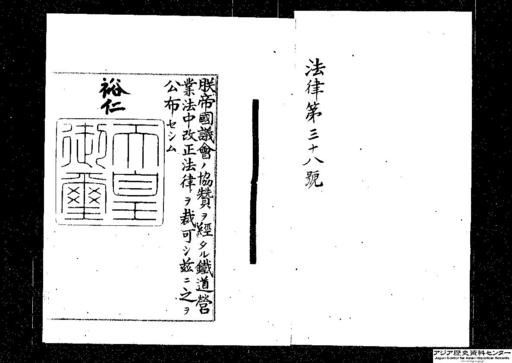 法律第三十八號
朕帝國議會ノ協贊ヲ經タル鐵道營
業法中改正法律ヲ裁可シ茲ニ之ヲ
公布セシム
裕仁
天皇
御璽
アジア歴史資料センター
Japan Center for Asian Historical Records